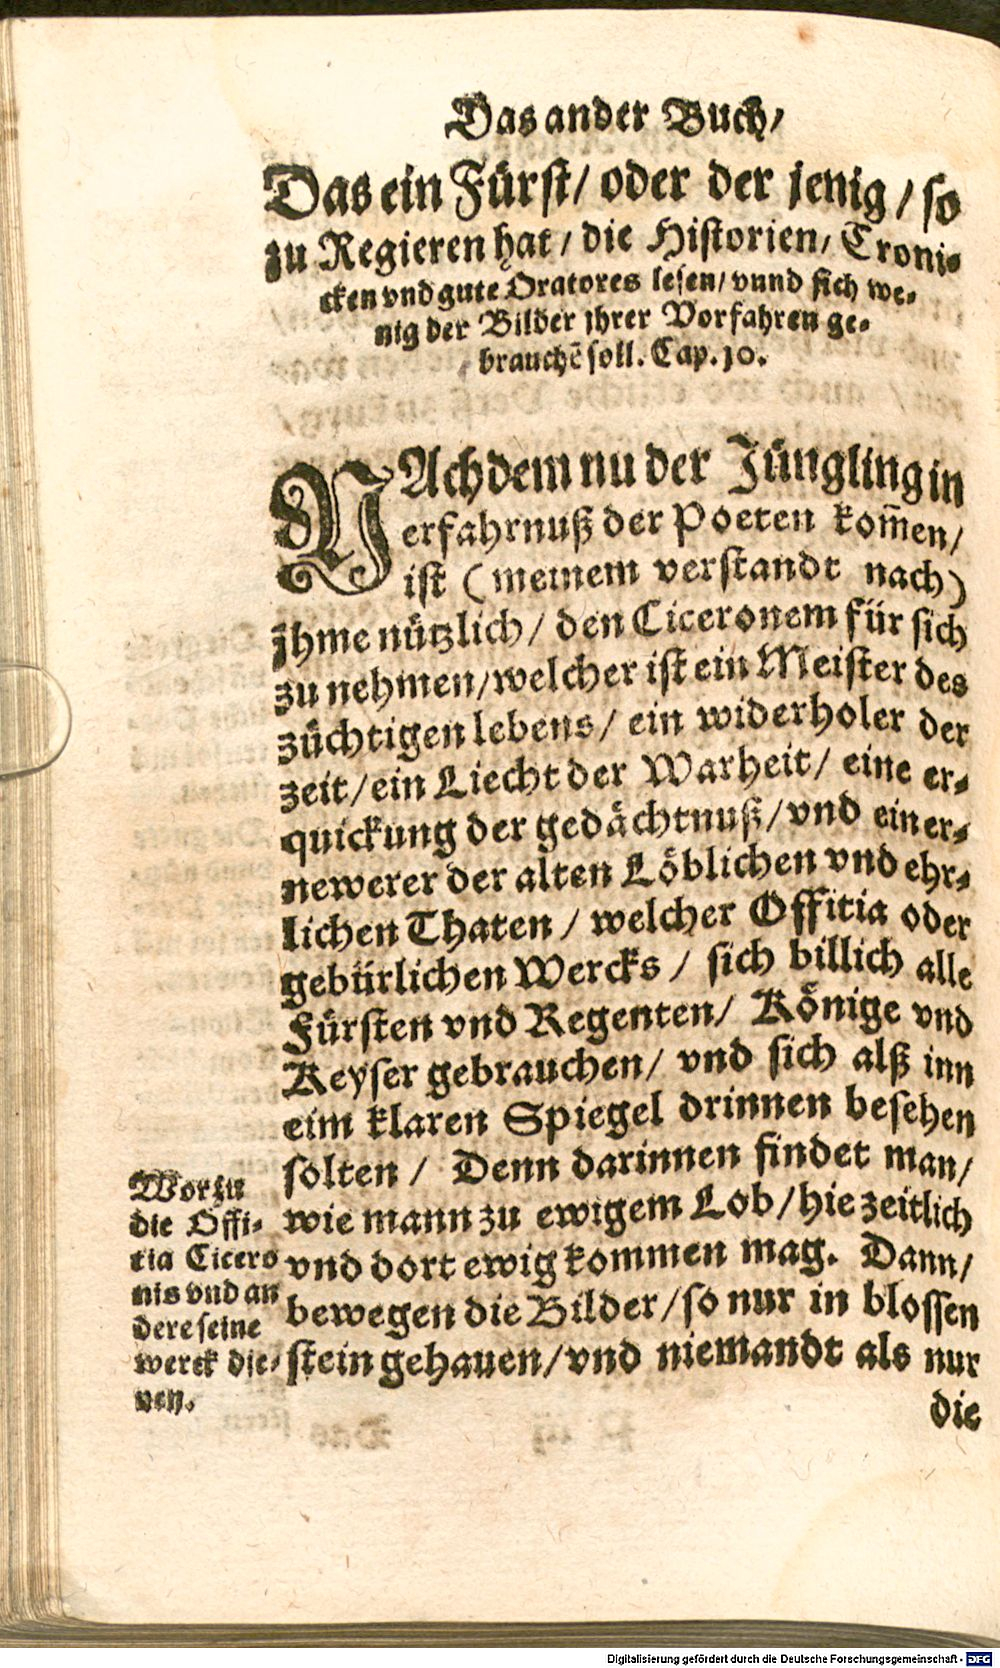 Das ander Buch/
Das ein Fürst/ oder der jenig/ so
zu Regieren hat/ die Historien/ Croni-
cken vnd gute Oratores lesen/ vnnd sich we-
nig der Bilder jhrer Vorfahren ge-
brauchẽ soll. Cap. 10.
NAchdem nu der Jüngling in
erfahrnuß der Poeten kom̃en/
ist (meinem verstandt nach)
jhme nützlich/ den Ciceronem für sich
zu nehmen/ welcher ist ein Meister des
züchtigen lebens/ ein widerholer der
zeit/ ein Liecht der Warheit/ eine er-
quickung der gedächtnuß/ vnd ein er-
newerer der alten Löblichen vnd ehr-
lichen Thaten/ welcher Offitia oder
gebürlichen Wercks/ sich billich alle
Fürsten vnd Regenten/ Könige vnd
Keyser gebrauchen/ vnd sich alß inn
eim klaren Spiegel drinnen besehen
solten/ Denn darinnen findet man/
wie mann zu ewigem Lob/ hie zeitlich
vnd dort ewig kommen mag. Dann/
bewegen die Bilder/ so nur in blossen
stein gehauen/ vnd niemandt als nur
die
Worzu
die Offi-
tia Cicero
nis vnd an
dere seine
werck die-
nen.
Digitalisierung gefördert durch die Deutsche Forschungsgemeinschaft - DFG